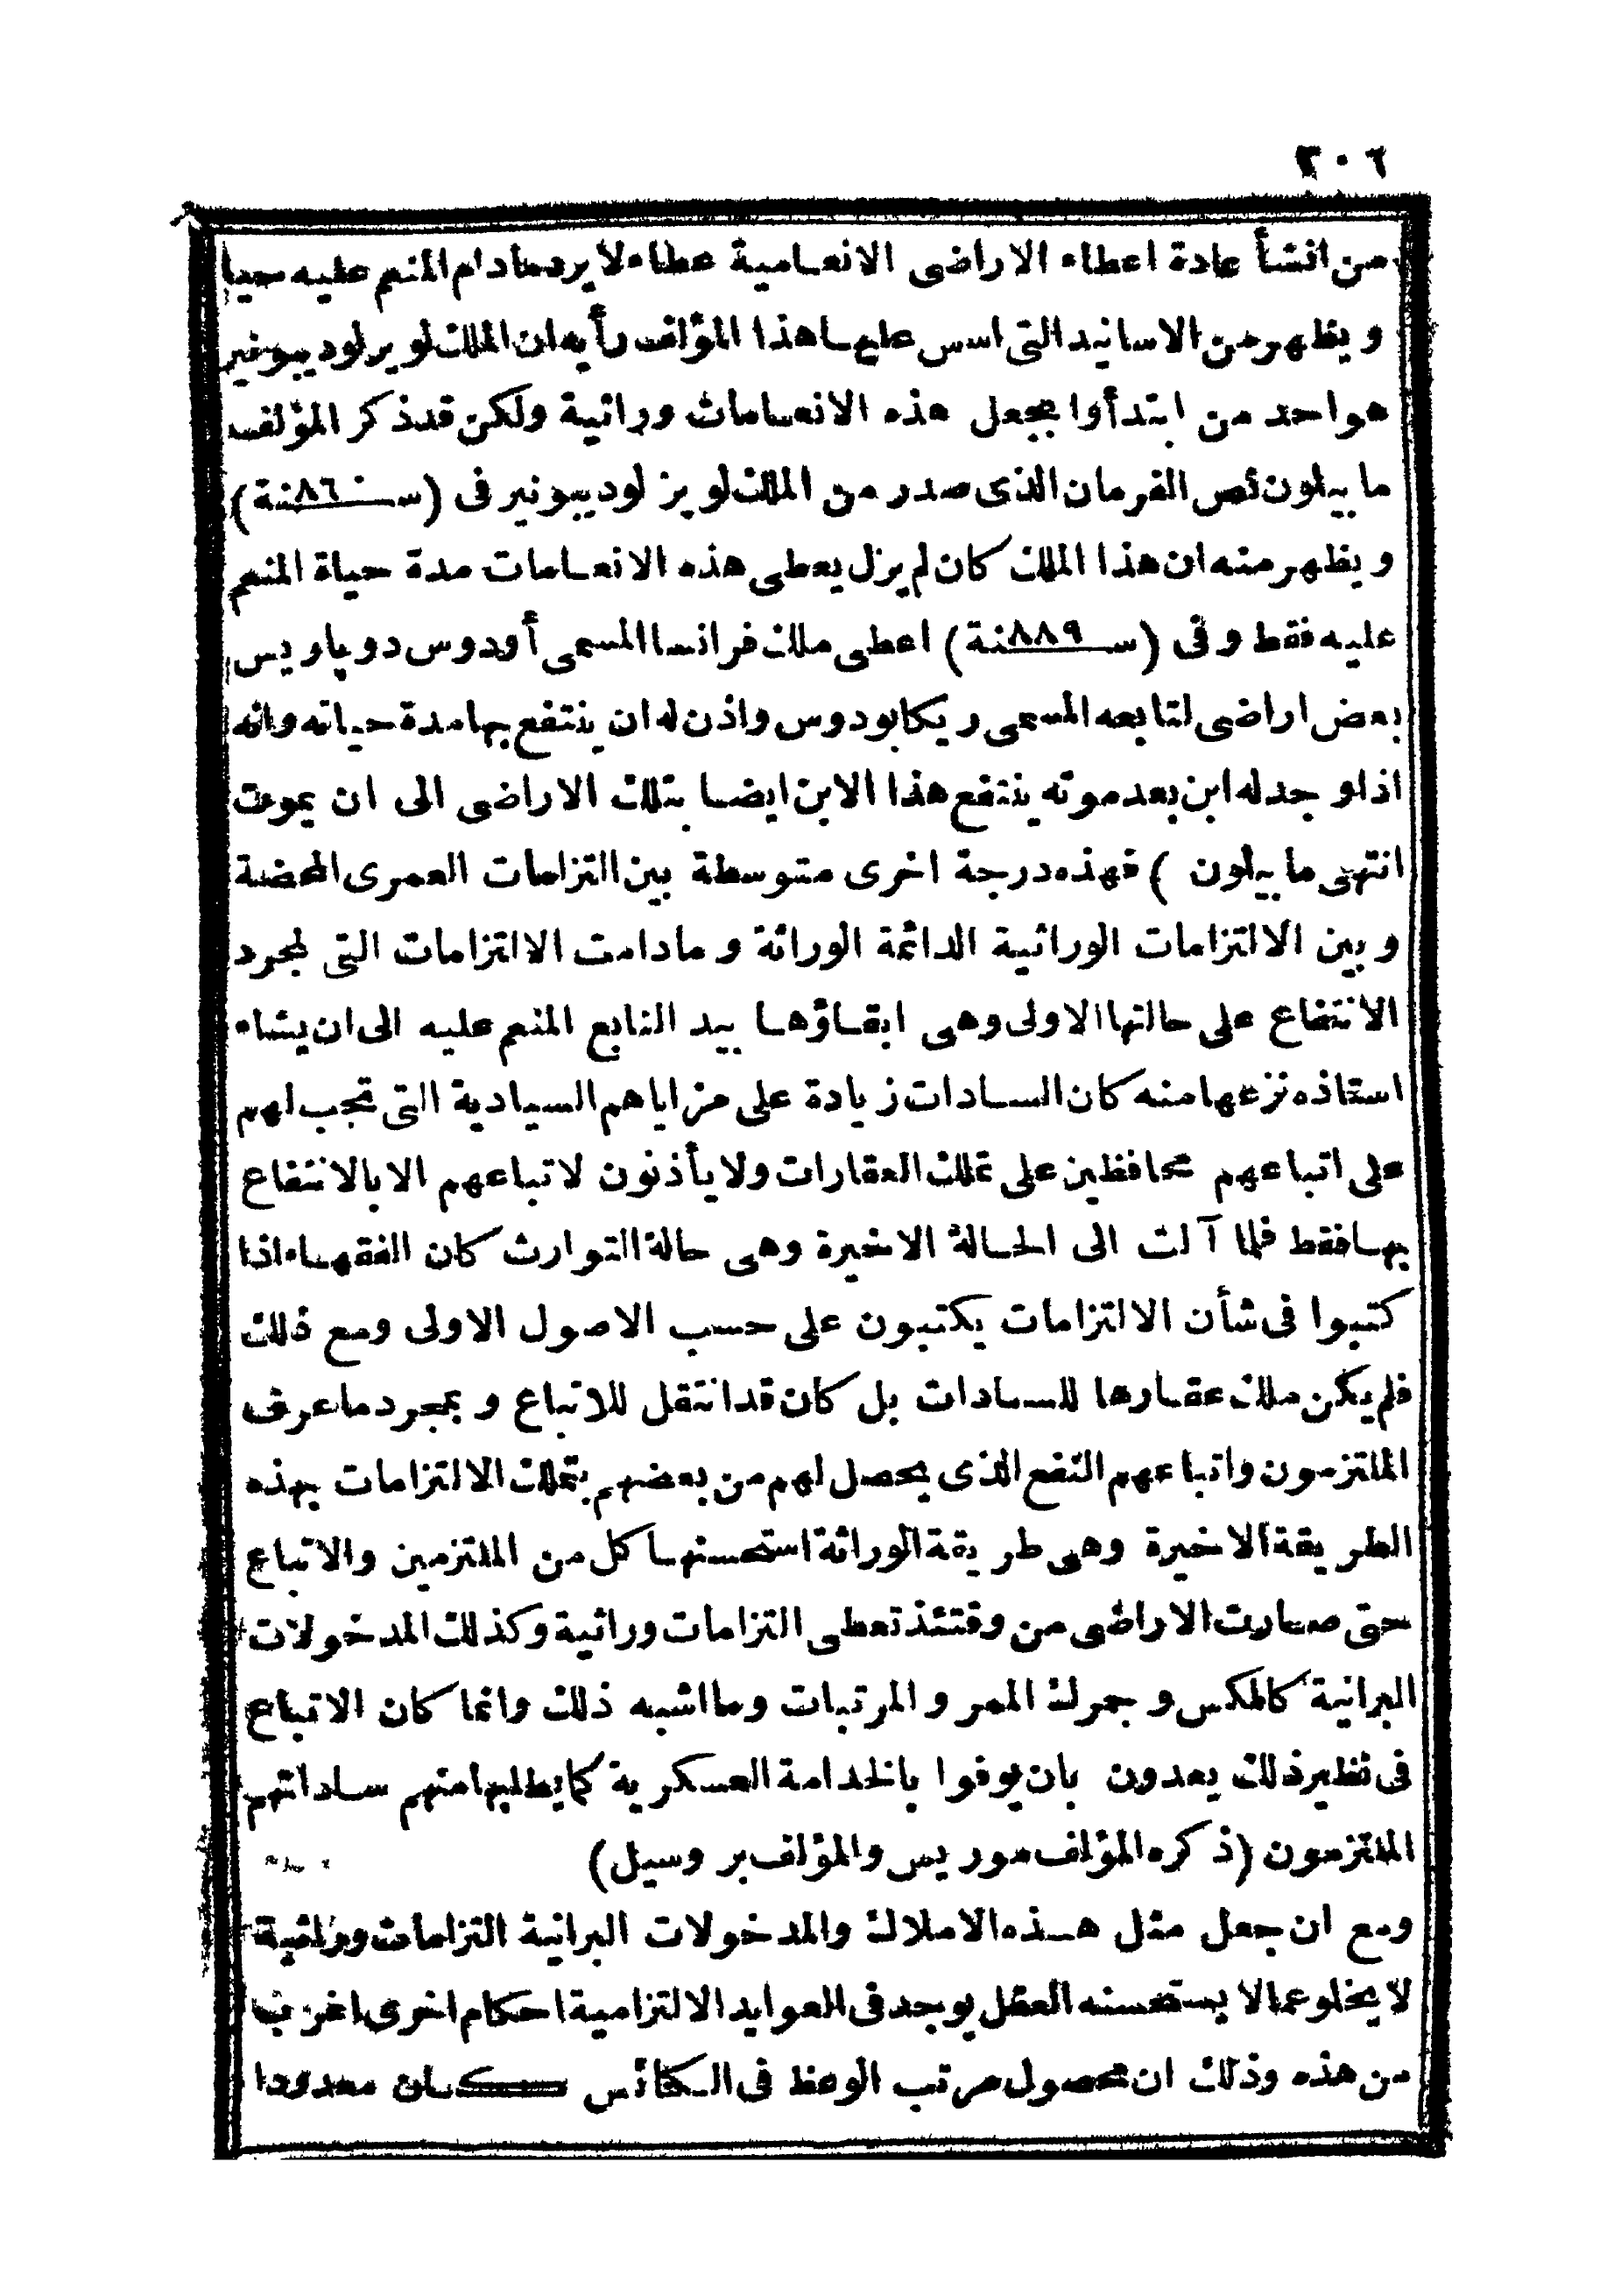 ٢٠٦
من انشأ عادة اعطاء الاراضى الانعامية عطاء لا يرد مادام المنعم عليه حيا
ويظهر من الاسانيد التى اسس عليها هذا المؤلف رأيه ان الملك لويز لوديبونير
هو احد من ابتدأوا بجعل هذه الانعامات وراثية ولكن قد ذكر المؤلف
مابيلون نص الفرمان الذى صدر من الملك لويز لوديبونير فى (سنة ٨٦)
ويظهر منه ان هذا الملك كان لم يزل يعطى هذه الانعامات مدة حياة المنعم
عليه فقط وفى (سنة ٨٨٩) اعطى ملك فرانسا المسمى أودوس دوپاريس
بعض اراضى لتابعه المسمى ريكابودوس واذن له ان ينتفع بها مدة حياته وانه
اذا وجد له ابن بعد موته ينتفع هذا الابن ايضا بتلك الاراضى الى ان يموت
انتهى مابيلون ) فهذه درجة اخرى متوسطة بين التزامات العمرى المحضة
وبين الالتزامات الوراثية الدائمة الوراثة ومادامت الالتزامات التى لمجرد
الانتفاع على حالتها الاولى وهى ابقاؤها بيد التابع المنعم عليه الى ان يشاء
استاذه نزعها منه كان السادات زيادة على مزاياهم السيادية التى تجب لهم
على اتباعهم محافظين على تملك العقارات ولا يأذنون لاتباعهم الا بالانتفاع
بها فقط فلما آلت الى الحالة الاخيرة وهى حالة التوارث كان الفقهاء اذا
كتبوا فى شأن الالتزامات يكتبون على حسب الاصول الاولى ومع ذلك
فلم يكن ملك عقارها للسادات بل كان قد انتقل للاتباع وبمجرد ما عرف
الملتزمون واتباعهم النفع الذى يحصل لهم من بعضهم بتملك الالتزامات بهذه
الطريقة الاخيرة وهى طريقة الوراثة استحسنها كل من الملتزمين والاتباع
حتى صارت الاراضى من وقتئذ تعطى التزامات وراثية وكذلك المدخولات
البرانية كالمكس وجمرك الممر والمرتبات وما اشبه ذلك وانما كان الاتباع
فى نظير ذلك يعدون بان يوفوا بالخدامة العسكرية كما يطلبها منهم ساداتهم
الملتزمون (ذكره المؤلف موريس والمؤلف بروسيل)
ومع ان جعل مثل هذه الاملاك والمدخولات البرانية التزامات وراثية
لا يخلو عما لا يستحسنه العقل يوجد فى العوايد الالتزامية احكام اخرى اغرب
من هذه وذلك ان محصول مرتب الوعظ فى الكنائس كان معدودا